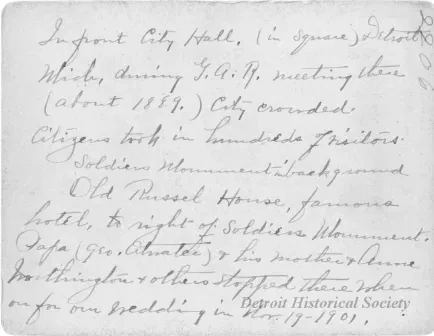 In front City Hall. (in Square) Detroit
Mich, during G.A.R. meeting there
(about 1889.) City crowded.
Citizens took in hundreds of visitors.
Soldiers Monument in background
Old Russel House, famous
hotel, to right of Soldiers Monument.
Papa (Geo. Atwater) & his mother & Anne
Worthington & others stopped there when
on for our wedding in Nov. 19-1901.
Detroit Historical Society